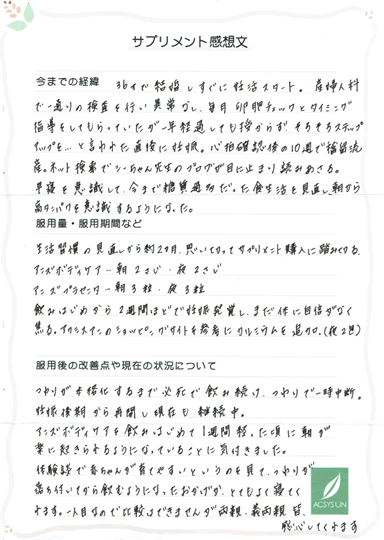 サプリメント感想文
今までの経緯 36才で結婚しすぐに妊活スタート。産婦人科
で一通りの検査を行い異常なし、毎月卵胞チェックとタイミング
指導をしてもらっていたが一年経過しても授からず、そろそろステップ
アップを…と言われた直後に妊娠。心拍確認後の10週で稽留流
産。ネット検索でシーちゃん先生のブログが目に止まり読みあさる。
を意識して、今まで糖質過多だった食生活を見直し朝から
高タンパクを意識するようになった。
服用量・服用期間など
生活習慣の見直しから約2ヶ月、思いきってサプリメント購入に踏みきる。
アンズボディケアー朝2さじ・夜2さじ
アンズプラセンター朝3粒・夜3粒
飲みはじめから2週間ほどで妊娠発覚し、まだ体に自信がなく
焦る。アクシスアンのショッピングサイトを参考にカルシウムを追加。(夜2包)
服用後の改善点や現在の状況について
つわりが本格化するまで必死で飲み続け、つわりで一時中断。
妊娠後期から再開し現在も継続中。
アンズボディケアを飲みはじめて1週間経った頃に朝が
楽に起きられるようになっていることに気付きました。
体験談で赤ちゃんが育てやすいというのを見て、つわりが
落ち着いてから飲むようになったおかげか、とてもよく寝てく
れます。一人目なので比較はできませんが両親・義両親皆、
感心してくれます
ACSYSUN